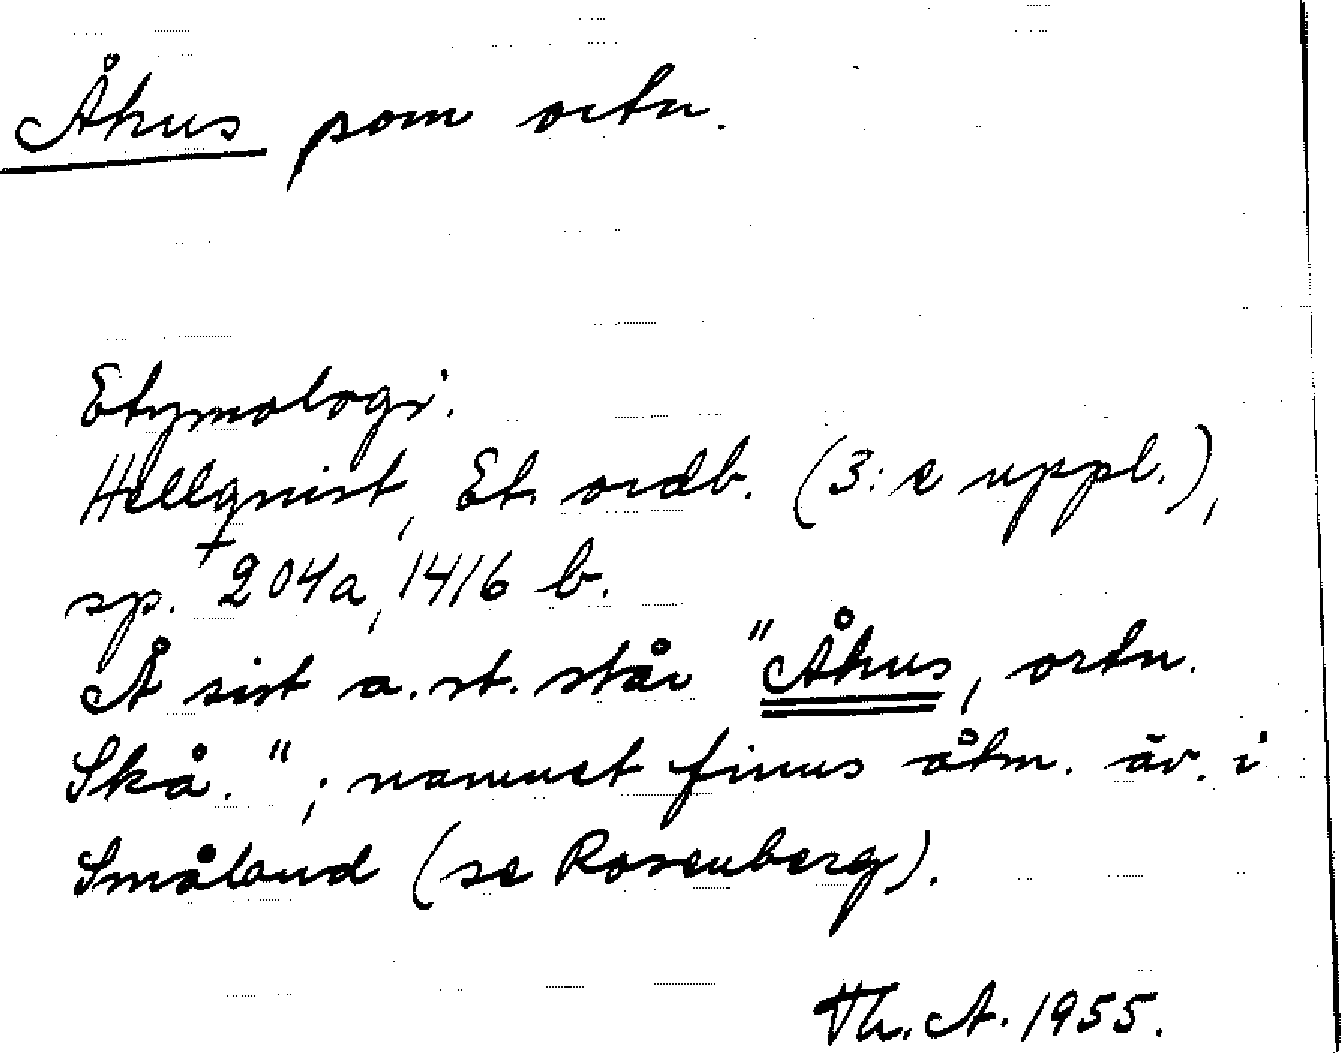 Åhus som ortn.
Etymologi.
Hellquist, Et. ordb. (3:e uppl.),
sp. +204a, 1416 b.
Å sist a. st. står "Åhus, ortn.
Skå."; namnet finns åtm. äv. i
Småland (se Rosenberg).
Th. A. 1955.